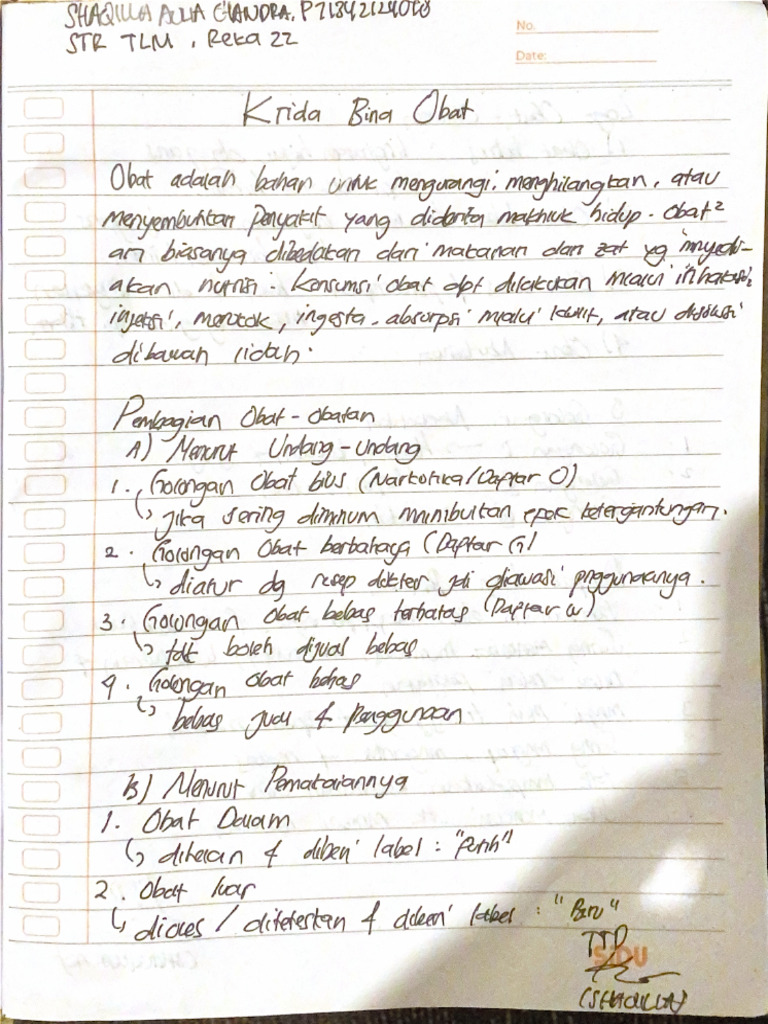 SHAQILLA AULIA CHANDRA. P71842124008
STR TLM, Reka 22
No.
Date:
Krida Bina Obat
Obat adalah bahan untuk mengurangi, menghilangkan, atau
menyembuhkan penyakit yang diderita makhluk hidup. Obat²
an biasanya dibedakan dari makanan dan zat yg menyedi-
akan nutrisi. Konsumsi obat dpt dilakukan melalui inhalasi,
injeksi, merokok, ingesta, absorpsi melalui kulit, atau disolusi
dibawah lidah.
Pembagian Obat-obatan
A) Menurut Undang-undang
1. Golongan Obat bius (Narkotika/Daftar O)
↳ jika sering diminum menibulkan efek ketergantungan.
2. Golongan Obat berbahaya (Daftar G)
↳ diatur dg resep dokter jdi diawasi penggunaanya.
3. Golongan Obat bebas terbatas (Daftar W)
↳ tdk boleh dijual bebas
4. Golongan Obat bebas
↳ bebas jual & penggunaan
B) Menurut Pemakaiannya
1. Obat Dalam
↳ ditelan & diberi label : "Putih"
2. Obat luar
↳ dioles / diteteskan & diberi label : "Biru"
TTD
SiDU
(SHAQILLA)